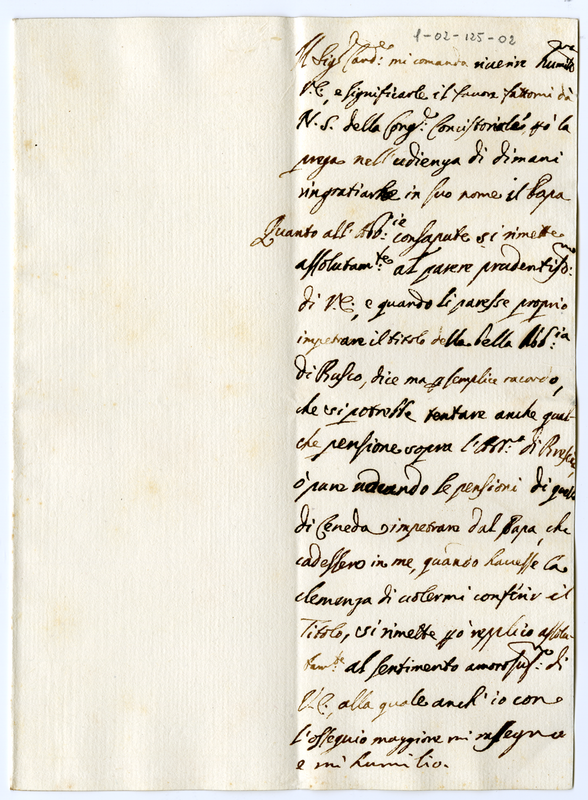 1-02-125-02
Il Sig.r Card.le mi comanda riverire humilm.te
V.E. e significarle il favore fattomi da
N.S. della Cong.e Concistoriale, però la
prega nell'udienza di dimani
ringratiarne in suo nome il Papa
Quanto all'Abb.ie consapute si rimette
assolutam.te al parere prudentiss.mo
di V.E., e quando li paresse proprio
impetrare il titolo della bella Abb.ia
di Busco, dice ma p semplice racordo,
che si potrebbe tentare anche qual-
che pensione sopra l'Abb.a di Brescia,
ò pure le pensioni di quella
di Ceneda impetrare dal Papa, che
cadessero in me, quando havesse la
clemenza di volermi conferir il
Titolo, si rimette però replico assolu-
tam.te al sentimento amorosiss.o di
V.E., alla quale anch'io con
l'ossequio maggiore mi rassegno
e mi humilio.